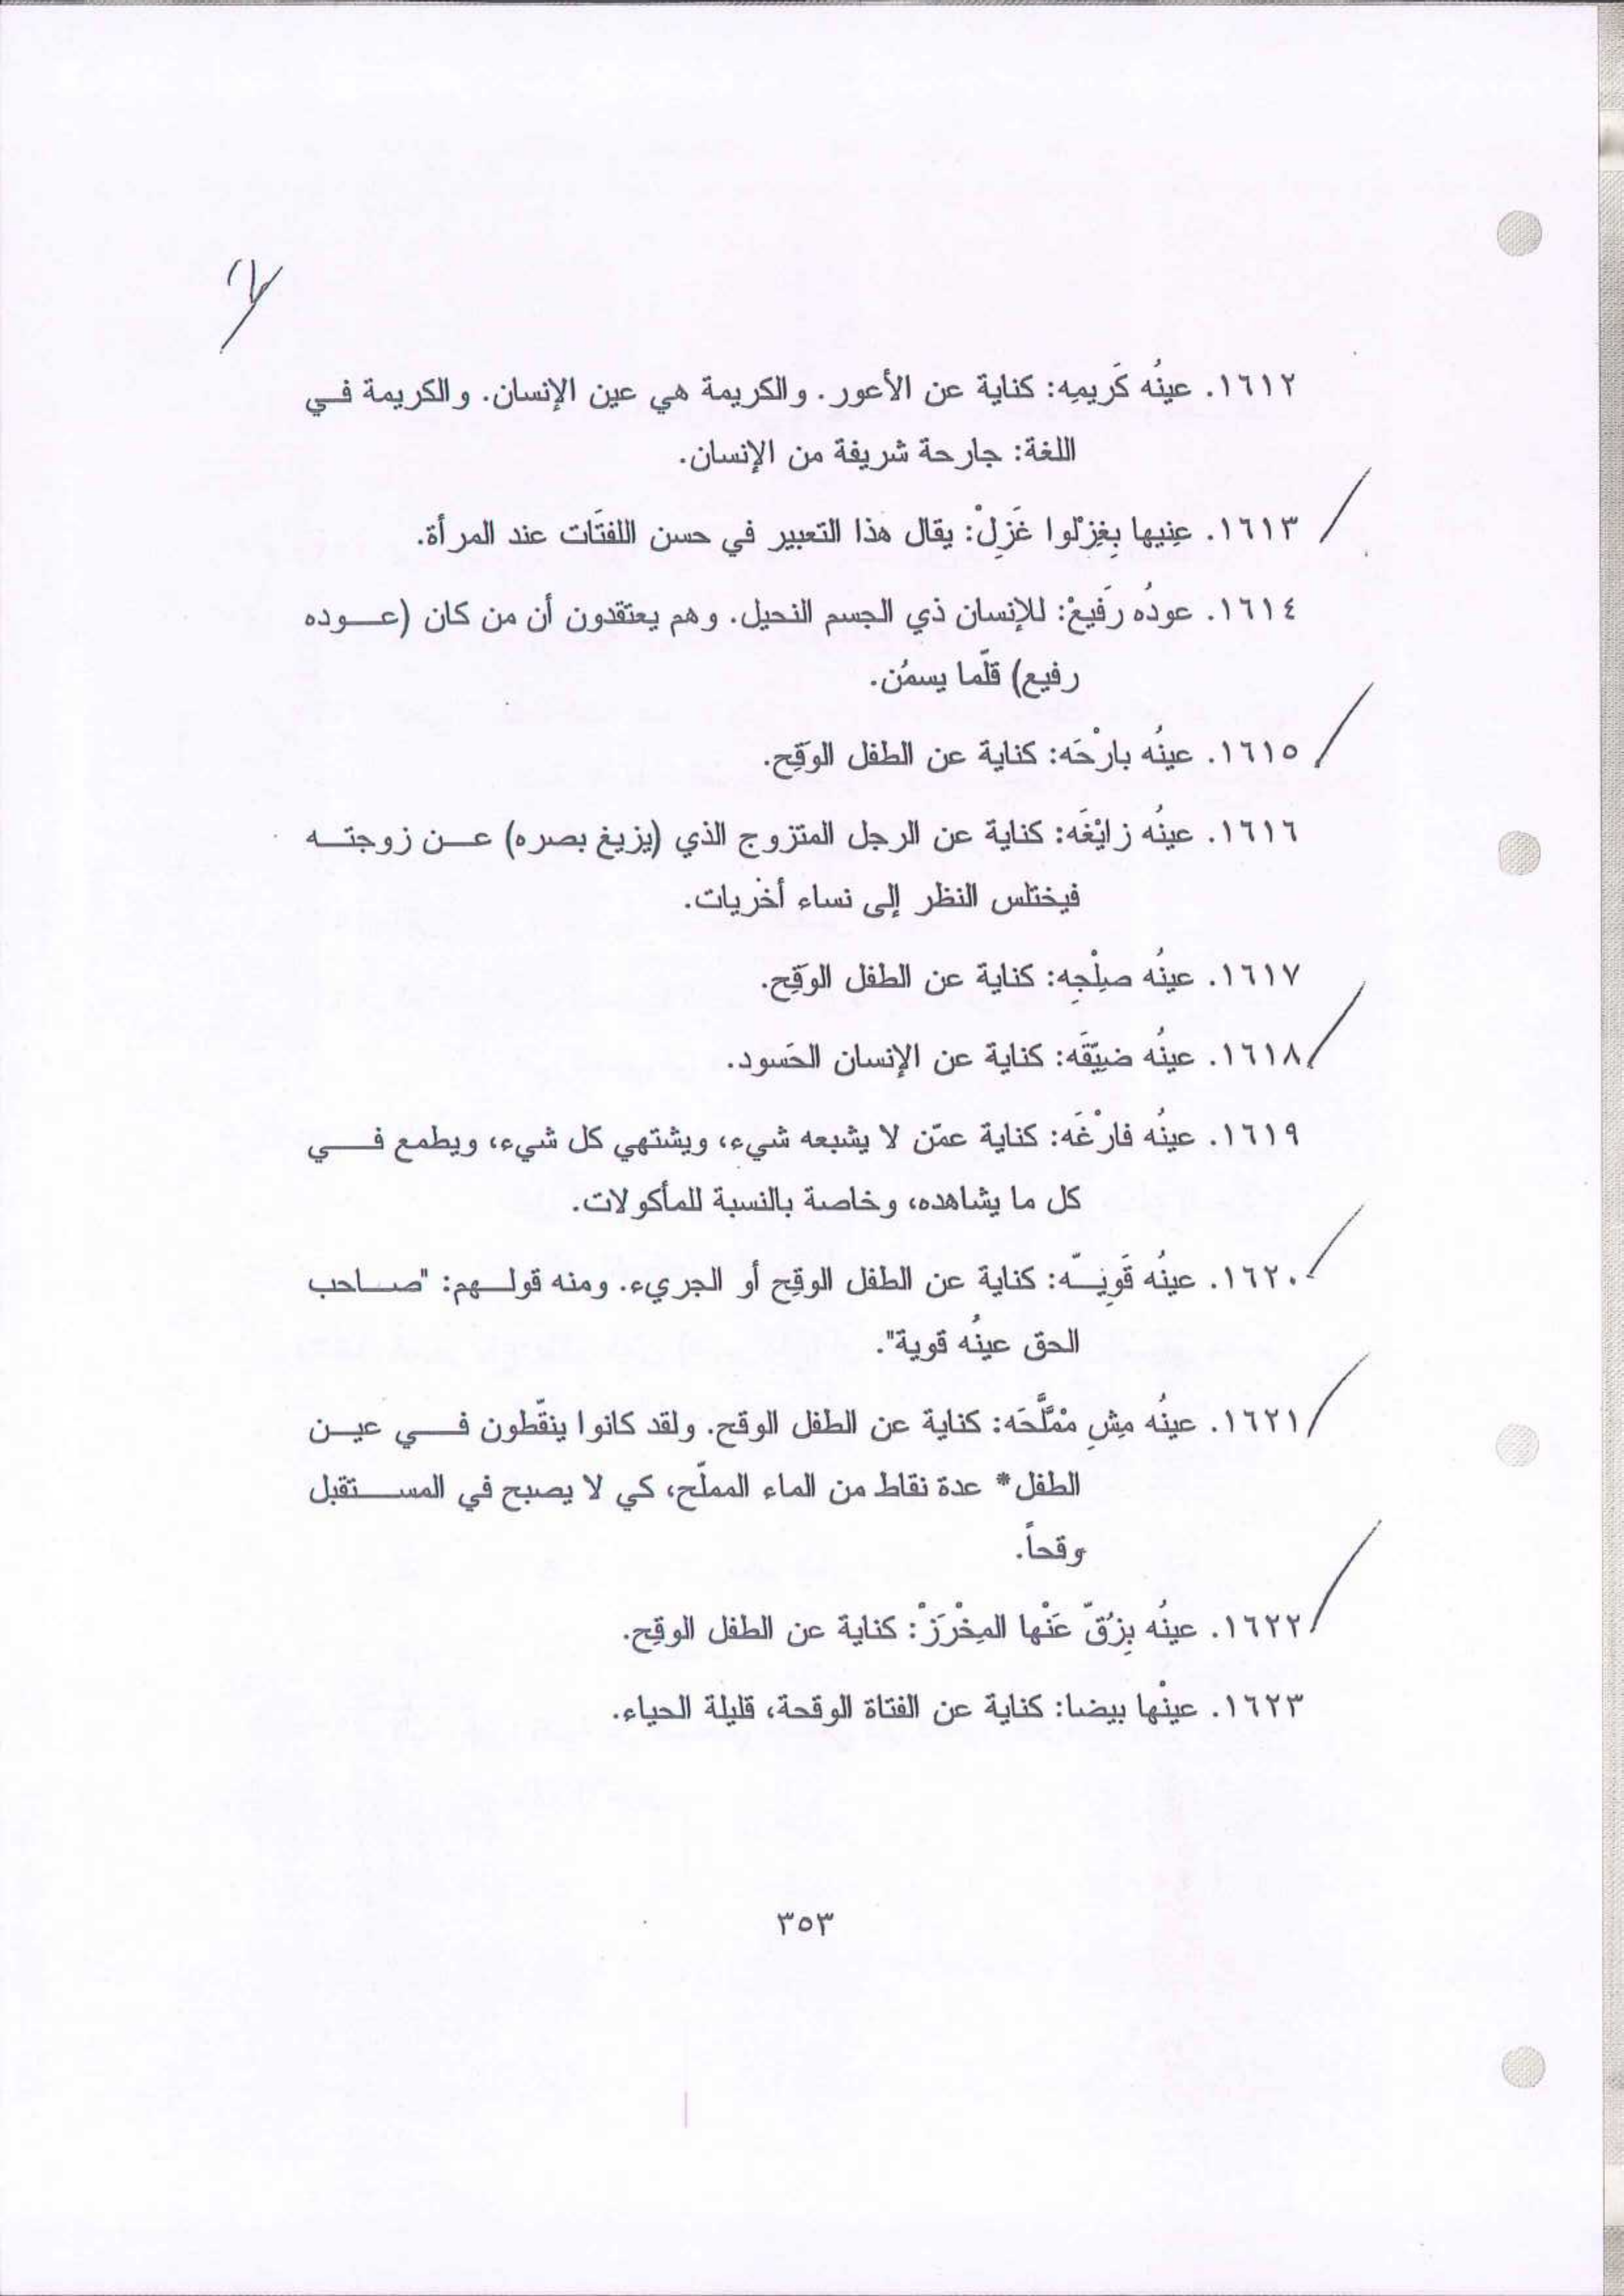 ١٦١٢. عينُه كَريمِه: كناية عن الأعور. والكريمة هي عين الإنسان. والكريمة في
اللغة: جارحة شريفة من الإنسان.
١٦١٣. عِنيها بِغِزْلوا غَزِلْ: يقال هذا التعبير في حسن اللفتَات عند المرأة.
١٦١٤. عودُه رَفيعْ: للإنسان ذي الجسم النحيل. وهم يعتقدون أن من كان (عوده
رفيع) قلّما يسمُن.
١٦١٥. عينُه بارْحَه: كناية عن الطفل الوَقِح.
١٦١٦. عينُه زايْغَه: كناية عن الرجل المتزوج الذي (يزيغ بصره) عن زوجته
فيختلس النظر إلى نساء أخريات.
١٦١٧. عينُه صلِْجِه: كناية عن الطفل الوَقِح.
١٦١٨. عينُه ضيّقَه: كناية عن الإنسان الحَسود.
١٦١٩. عينُه فارْغَه: كناية عمّن لا يشبعه شيء، ويشتهي كل شيء، ويطمع في
كل ما يشاهده، وخاصة بالنسبة للمأكولات.
١٦٢٠. عينُه قَويّه: كناية عن الطفل الوقِح أو الجريء. ومنه قولهم: "صاحب
الحق عينُه قوية".
١٦٢١. عينُه مِشِ مْمَلَّحَه: كناية عن الطفل الوقح. ولقد كانوا ينقّطون في عين
الطفل* عدة نقاط من الماء المملّح، كي لا يصبح في المستقبل
وقحاً.
١٦٢٢. عينُه بِزُقّ عَنْها المِخْرَزْ: كناية عن الطفل الوقِح.
١٦٢٣. عينْها بيضا: كناية عن الفتاة الوقحة، قليلة الحياء.
٣٥٣